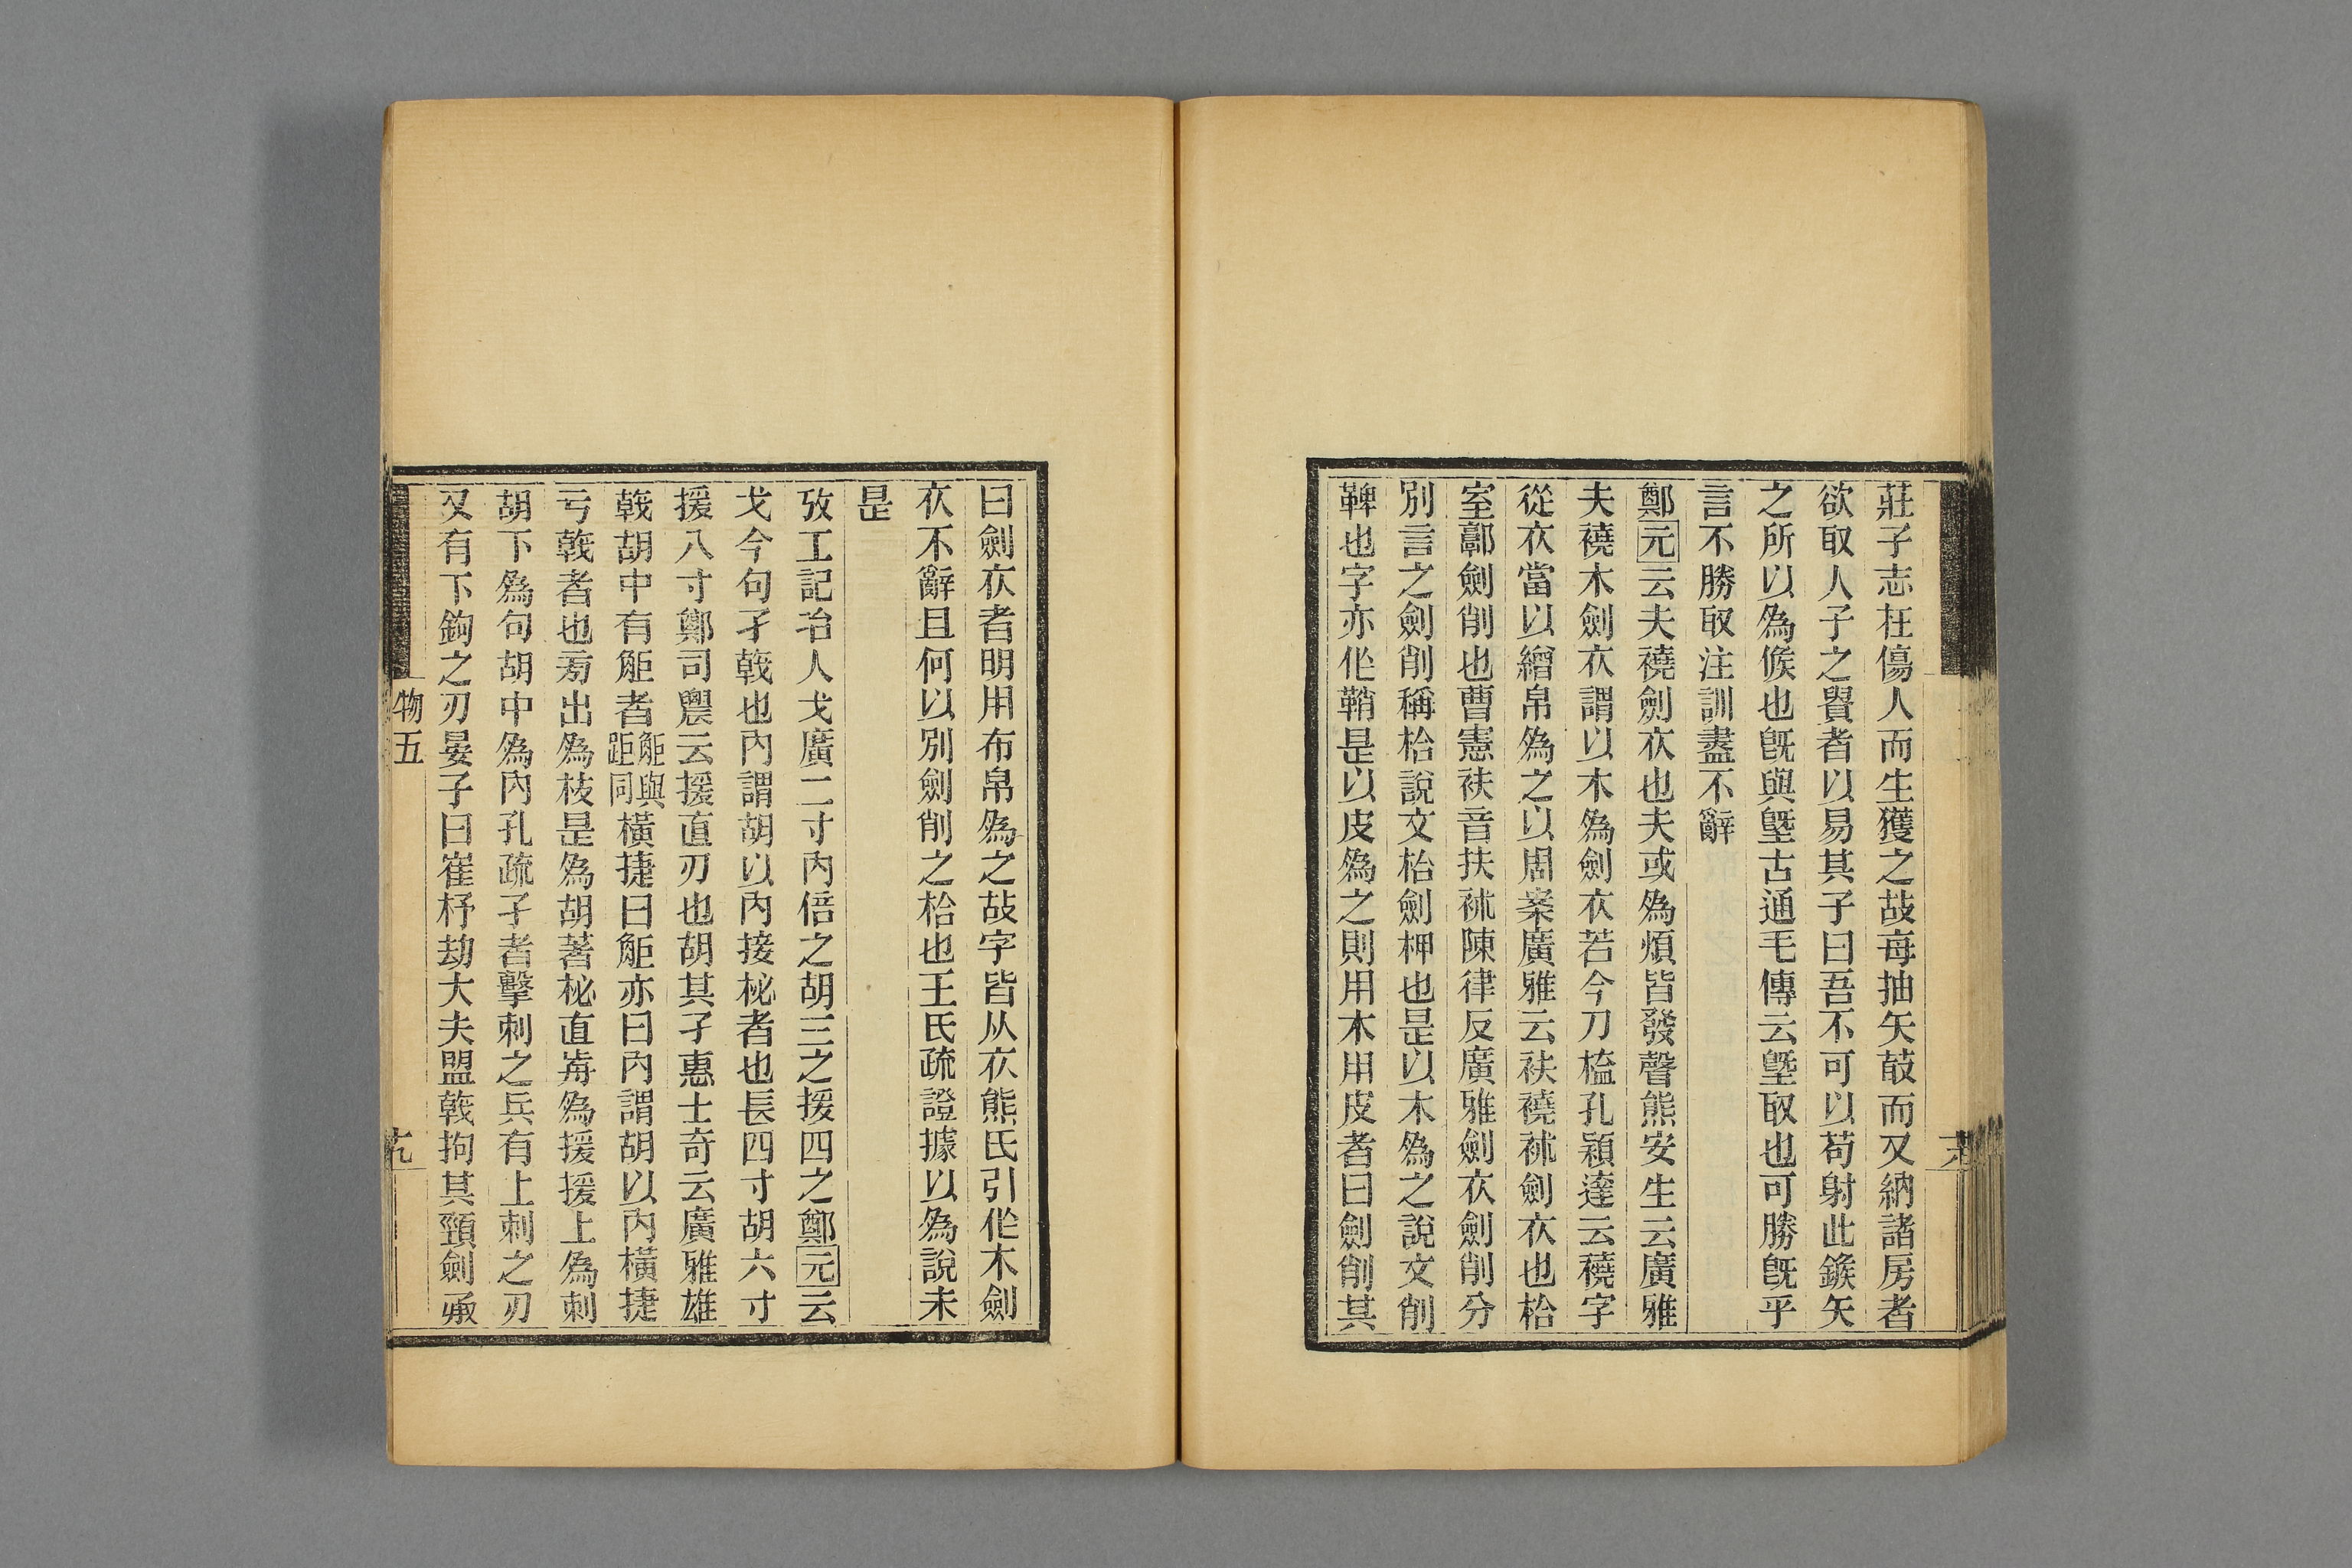 莊子志在傷人而生獲之故每抽矢菆而又納諸房者
欲取人子之貴者以易其子曰吾不可以苟射此鏃矢
之所以為候也旣與墍古通毛傳云墍取也可勝旣乎
言不勝取注訓盡不辭
鄭元云夫襓劍衣也夫或為煩皆發聲熊安生云廣雅
夫襓木劍衣謂以木為劍衣若今刀榼孔穎達云襓字
從衣當以繒帛為之以周案廣雅云袂襓袾劍衣也枱
室鄣劍削也曹憲袂音扶袾陳律反廣雅劍衣劍削分
別言之劍削稱枱說文枱劍柙也是以木為之說文削
鞞也字亦作鞘是以皮為之則用木用皮者曰劍削其
曰劍衣者明用布帛為之故字皆从衣熊氏引作木劍
衣不辭且何以別劍削之枱也王氏疏證據以為說未
是
攷工記冶人戈廣二寸內倍之胡三之援四之鄭元云
戈今句孑戟也內謂胡以內接柲者也長四寸胡六寸
援八寸鄭司農云援直刃也胡其孑惠士奇云廣雅雄
戟胡中有䶥者䶥與距同橫捷曰䶥亦曰內謂胡以內橫捷
亏戟者也旁出為枝是為胡著柲直歬為援援上為刺
胡下為句胡中為內孔疏孑者擊刺之兵有上刺之刃
又有下鉤之刃晏子曰崔杼劫大夫盟戟拘其頸劍承
物五